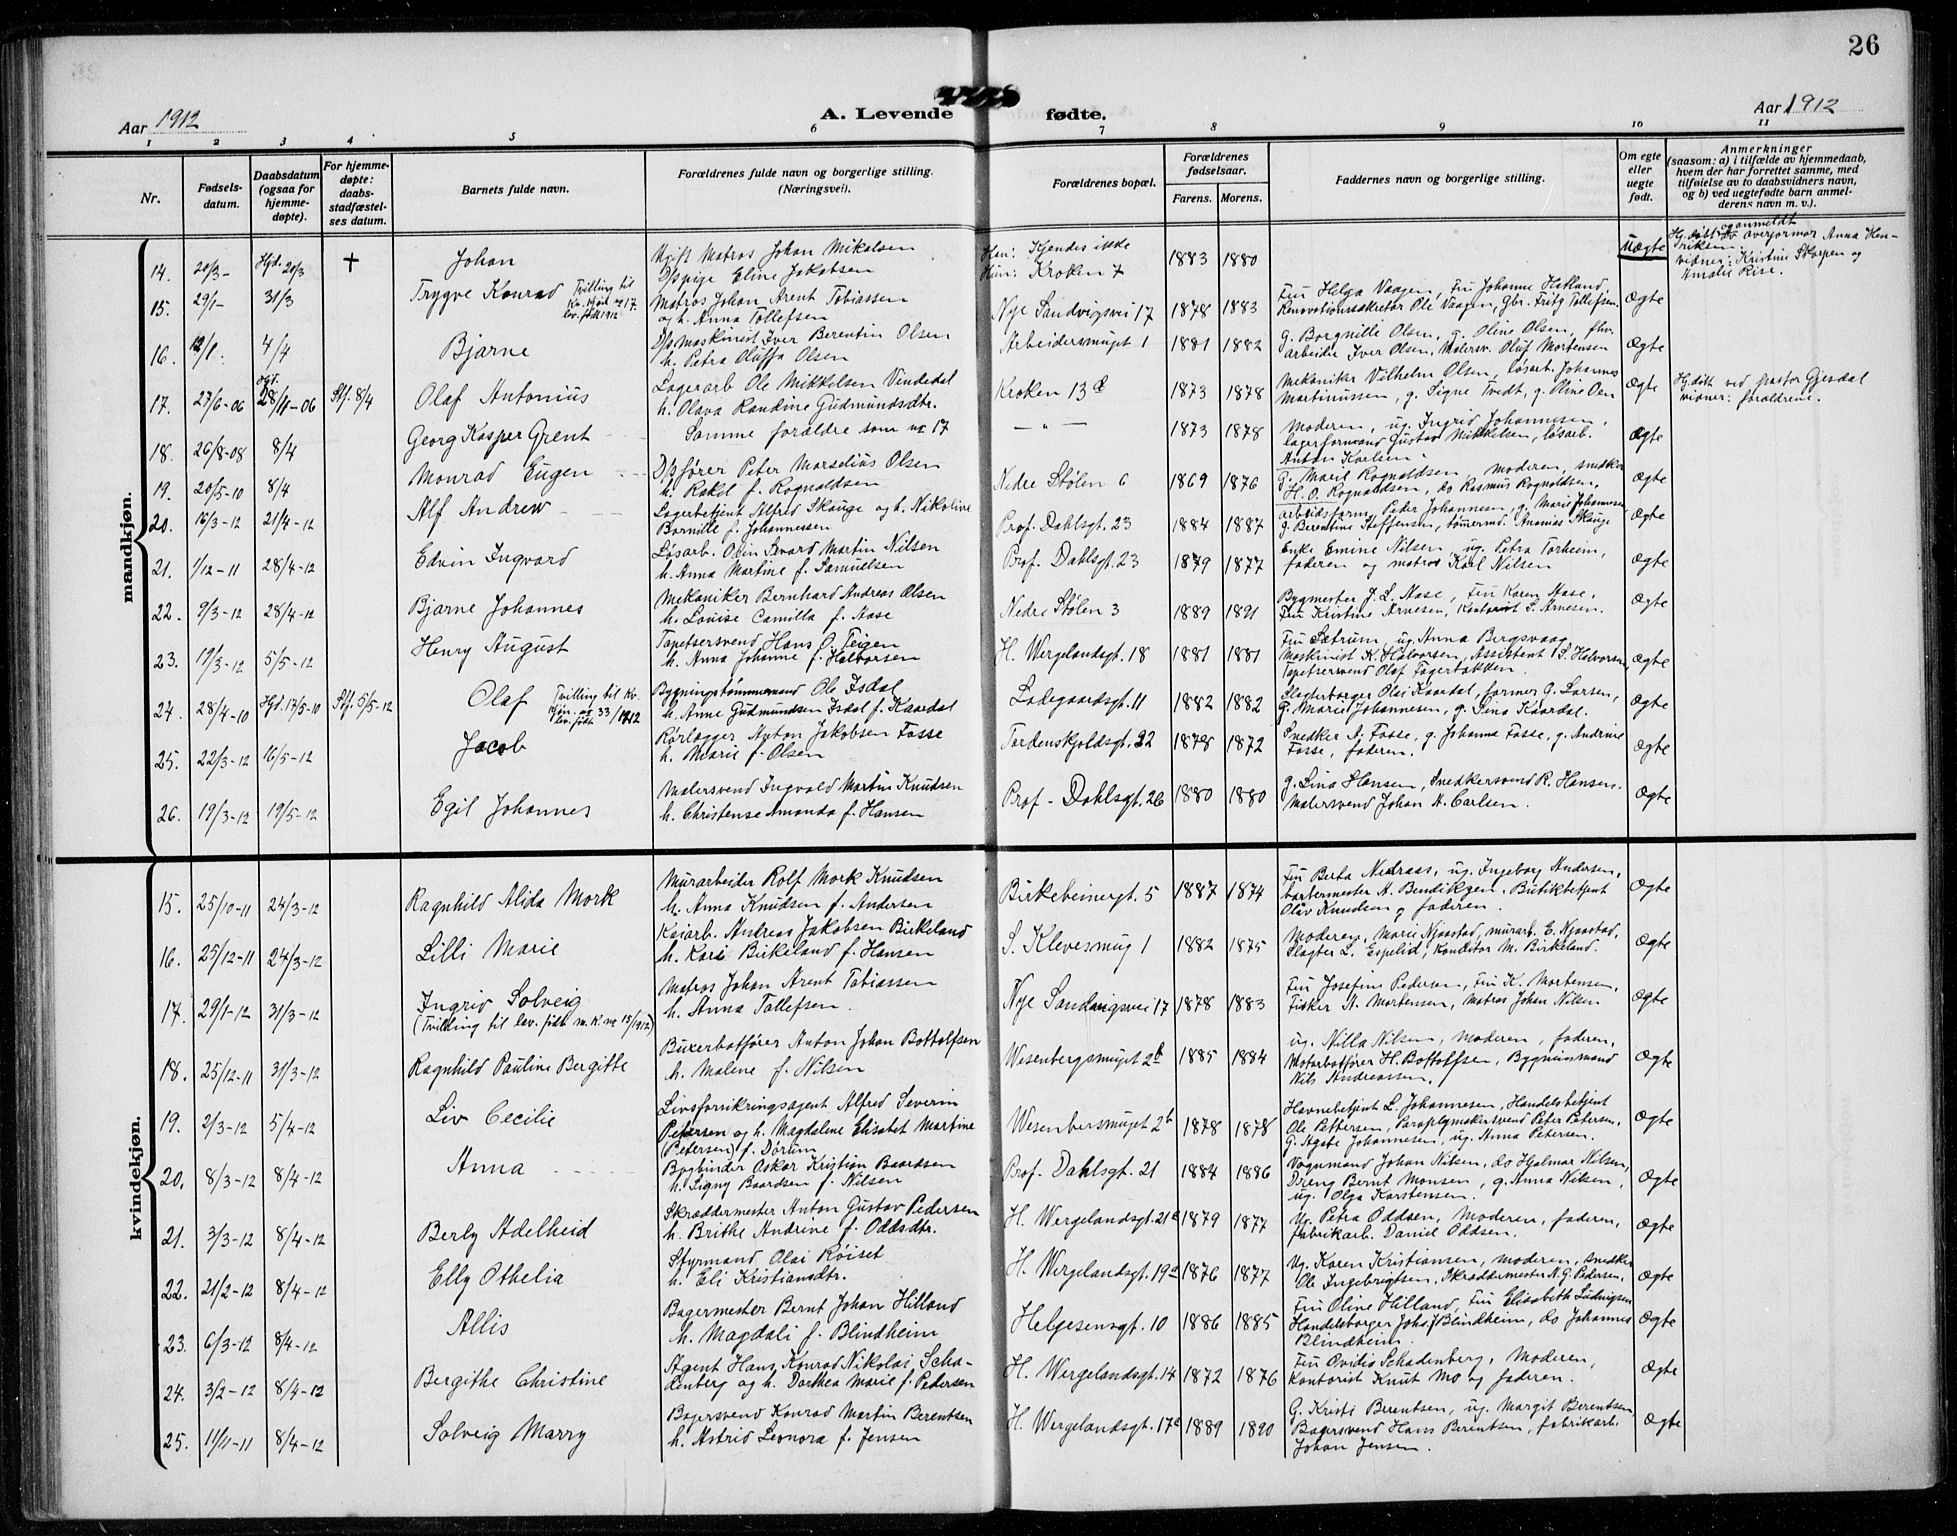 26
Aar 1912
A. Levende fødte.
Aar 1912
1 2 3 4 5 6 7 8 9 10 11
Nr.
Fødsels-
datum.
Daabsdatum
(ogsaa for
hjemme-
døpte).
For hjemme-
døpte:
daabs-
stadfæstel-
ses datum.
Barnets fulde navn.
Forældrenes fulde navn og borgerlige stilling.
(Næringsvei).
Forældrenes bopæl.
Forældrenes
fødselsaar.
Farens. Morens.
Faddernes navn og borgerlige stilling.
Om egte
eller
uegte
født.
Anmerkninger
(saasom: a) i tilfælde av hjemmedaab,
hvem der har forrettet samme, med
tilføielse av to daabsvidners navn,
og b) ved uegtefødte barn anmel-
derens navn m. v.).
mandkjøn.
14. 20/3- Hjd. 20/3 + Johan
Ugift Matros Johan Mikalsen
D/spige Eline Jakobsen
Han: Kjendes ikke
Hun: Kroken 7
1883 1880 uegte
Hj.døbt og anmeldt av overjormor Anna Hen-
riksen
vidner: Kristine Skorpen og
Amalie Rise.
15. 29/1- 31/3 Trygve Konrad Tvilling til
kv. kjøn nr 17.
lev. født 1912
Matros Johan Arent Tobiassen
og h. Anna Tollefsen
Nye Sandvigsvei 17 1878 1883
Fru Helga Vaagen, Fru Johanne Hetland,
Renovationssekretær Ole Vaagen, Gbr. Fritz Tollefsen.
Ægte
16. 12/1. 4/4 Bjarne
D/smaskinist Iver Berentin Olsen
h. Petra Oluffa Olsen
Arbeidersmuget 1 1881 1882
g. Borgnille Olsen, g. Oline Olsen, fhv.
arbeider Iver Olsen, Malersv. Oluf Mortensen
Ægte
17. 27/6-06 Hjd. 28/11-06 Stf. 8/4 Olaf Antonius
Lagerarb Ole Mikkelsen Vindedal
h. Olava Randine Gudmundsdtr.
Kroken 13d 1873 1878
Mekaniker Vilhelm Olsen, løsarb. Johannes
Martinussen, g. Signe Tvedt, g. Oline Oen
Ægte
Hj.døbt ved pastor Gjesdal
vidner: forældrene.
18. 26/8-08 8/4 Georg Kasper Grent
Samme forældre som nr 17
- " - 1873 1878
Moderen, ug. Ingrid Johannesen,
lagerformand Gustav Mikkelsen, løsarb.
Anton Karlsen.
Ægte
19. 20/5-10 8/4 Monrad Eugen
D/sfører Peter Marselius Olsen
h. Rakel f. Rognaldsen
Nedre Stølen 6 1869 1876
G. Marie Rognaldsen, moderen, snedker
H. O. Rognaldsen, do Rasmus Rognaldsen,
Ægte
20. 16/3-12 21/4-12 Alf Andrew
Lagerbetjent Alfred Skauge og h. Nikoline
Bornille f. Johannessen
Prof. Dahlsgt. 23 1884 1887
arbeidsform. Peder Johannesen, g. Marie Johannesen
g. Berentine Steffensen, tømermd. Ananias Skauge
Ægte
21. 1/12-11 28/4-12 Edvin Ingvard
Løsarb. Olin Sevard Martin Nilsen
h. Anna Martine f. Samuelsen
Prof. Dahlsgt. 23 1879 1877
Enke Emine Nilsen, ug. Petra Torheim,
faderen og matros Karl Nilsen
Ægte
22. 9/3-12 28/4-12 Bjarne Johannes
Mekaniker Bernhard Andreas Olsen
h. Louise Camilla f. Aase
Nedre Stølen 3 1889 1891
Bygmester J. L. Aase, Fru Karen Aase,
Fru Kristine Arnesen, Kontorist S. Arnesen.
Ægte
23. 19/3-12 5/5-12 Henry August
Tapetsersvend Hans O. Teigen
h. Anna Johanne f. Halvorsen
H. Wergelandsgt. 18 1881 1881
Fru Sætrum, ug. Anna Bergsvaag
Maskinist K. Halvorsen, Assistent S. Halvorsen,
Tapetsersvend Olaf Fagerbakken
Ægte
24. 28/4-10 Hjd. 17/5-10 Stf. 5/5-12 Olaf Tvilling til kv.
kjøn. nr 33/1912
lev. født
Bygningstømmermand Ole Isdal
h. Anne Gudmundsen Isdal f. Kaardal
Ladegaardsgt. 11 1882 1882
Slagterborger Olai Kaardal, former G. Larsen,
G. Marie Johannesen, g. Sina Kaardal.
Ægte
25. 22/3-12 16/5-12 Jacob
Rørlægger Anton Jakobsen Fosse
h. Marie f. Olsen
Tordenskjoldsgt. 22 1878 1872
Snedker A. Fosse, g. Johanna Fosse, g. Andrine
Fosse, faderen.
Ægte
26. 19/3-12 19/5-12 Egil Johannes
Malersvend Ingvald Martin Knudsen
h. Christense Amanda f. Hansen
Prof. Dahlsgt. 26 1880 1880
g. Lina Hansen, Snedkersvend R. Hansen.
Malersvend Johan A. Carlsen.
Ægte
kvindekjøn.
15. 25/10-11 24/3-12 Ragnhild Alida Mork
Murarbeider Rolf Mork Knudsen
h. Anna Knudsen f. Andersen
Birkebeinergt. 5 1887 1874
Fru Berta Nedraas, ug. Ingeborg Andersen,
bartermester A. Bendiksen. Butikbetjent
Olav Knudsen og faderen.
Ægte
16. 25/12-11 24/3-12 Lilli Marie
Kaiarb. Andreas Jakobsen Birkeland
h. Kari Birkeland f. Hansen
S. Klevesmug 1 1882 1875
Moderen, Marie Njaastad, murarb. E. Njaastad,
Slagter L. Espelid, Konditor M. Birkeland.
Ægte
17. 29/1-12 31/3-12 Ingrid Solveig
(Tvilling til lev. født m.k. nr 15/1912)
Matros Johan Arent Tobiassen
h. Anna Tollefsen.
Nye Sandvigsvei 17 1878 1883
Fru Josefine Pedersen, Fru K. Mortensen,
Fisker N. Mortensen, Matros Johan Nilsen
Ægte
18. 25/12-11 31/3-12 Ragnhild Pauline Bergitte
Buxerbotfører Anton Johan Bottolfsen
h. Malene f. Nilsen
Wesenbergsmuget 2b 1885 1884
ug. Nilla Nilsen, moderen, faderen,
Motorbotfører H. Bottolfsen, Bygningsmand
Nils Andreassen.
Ægte
19. 2/3-12 5/4-12 Liv Cecilie
Livsforsikringsagent Alfred Severin
Petersen og h. Magdalene Elisabet Martine
(Petersen) f. Dørum
Wesenbersmuget 2b 1878 1878
Havnebetjent L. Johannesen, Handelsbetjent
Ole Pettersen, Paraplymakersvend Peter Petersen,
G. Agate Johannesen, ug. Anna Petersen.
Ægte
20. 8/3-12 8/4-12 Anna
Bogbinder Oskar Kristian Baardsen
h. Signy Baardsen f. Nilsen
Prof. Dahlsgt. 21 1884 1886
Vognmand Johan Nilsen, do Hjalmar Nilsen,
Dreng Bernt Monsen, g. Anna Nilsen,
ug. Olga Karstensen.
Ægte
21. 3/3-12 8/4-12 Berly Adelheid
Skræddermester Anton Gustav Pedersen
h. Brithe Andrine f. Oddsdtr.
H. Wergelandsgt. 21a 1879 1877
Ug. Petra Oddsen, Moderen, faderen,
fabrikarb. Daniel Oddsen.
Ægte
22. 21/2-12 8/4-12 Elly Othelia
Styrmand Olai Røiset
h. Eli Kristiansdtr.
H. Wergelandsgt. 19a 1876 1877
Ug. Karen Kristiansen, moderen, snedker
Ole Ingebrigtsen, Skræddermester A. G. Pedersen,
Ægte
23. 6/3-12 8/4-12 Allis
Bagermester Bernt Johan Hilland
h. Magdali f. Blindheim
Helgesensgt. 10 1886 1885
Fru Oline Hilland, Fru Elisabeth Ludvigsen
Handelsborger Johs. Blindheim, do Johannes
Blindheim.
Ægte
24. 3/2-12 8/4-12 Bergithe Christine
Agent Hans Konrad Nikolai Scha-
denberg og h. Dorthea Marie f. Pedersen
H. Wergelandsgt. 14 1872 1876
Fru Ovidia Schadenberg, Moderen,
Kontorist Knut Mo og faderen.
Ægte
25. 11/11-11 8/4-12 Solveig Marry
Bagersvend Konrad Martin Berentsen
h. Astrid Leonora f. Jensen
H. Wergelandsgt. 17a 1889 1890
G. Kristi Berentsen, ug. Margit Berentsen,
Bagersvend Hans Berentsen, fabrikarb.
Johan Jensen.
Ægte